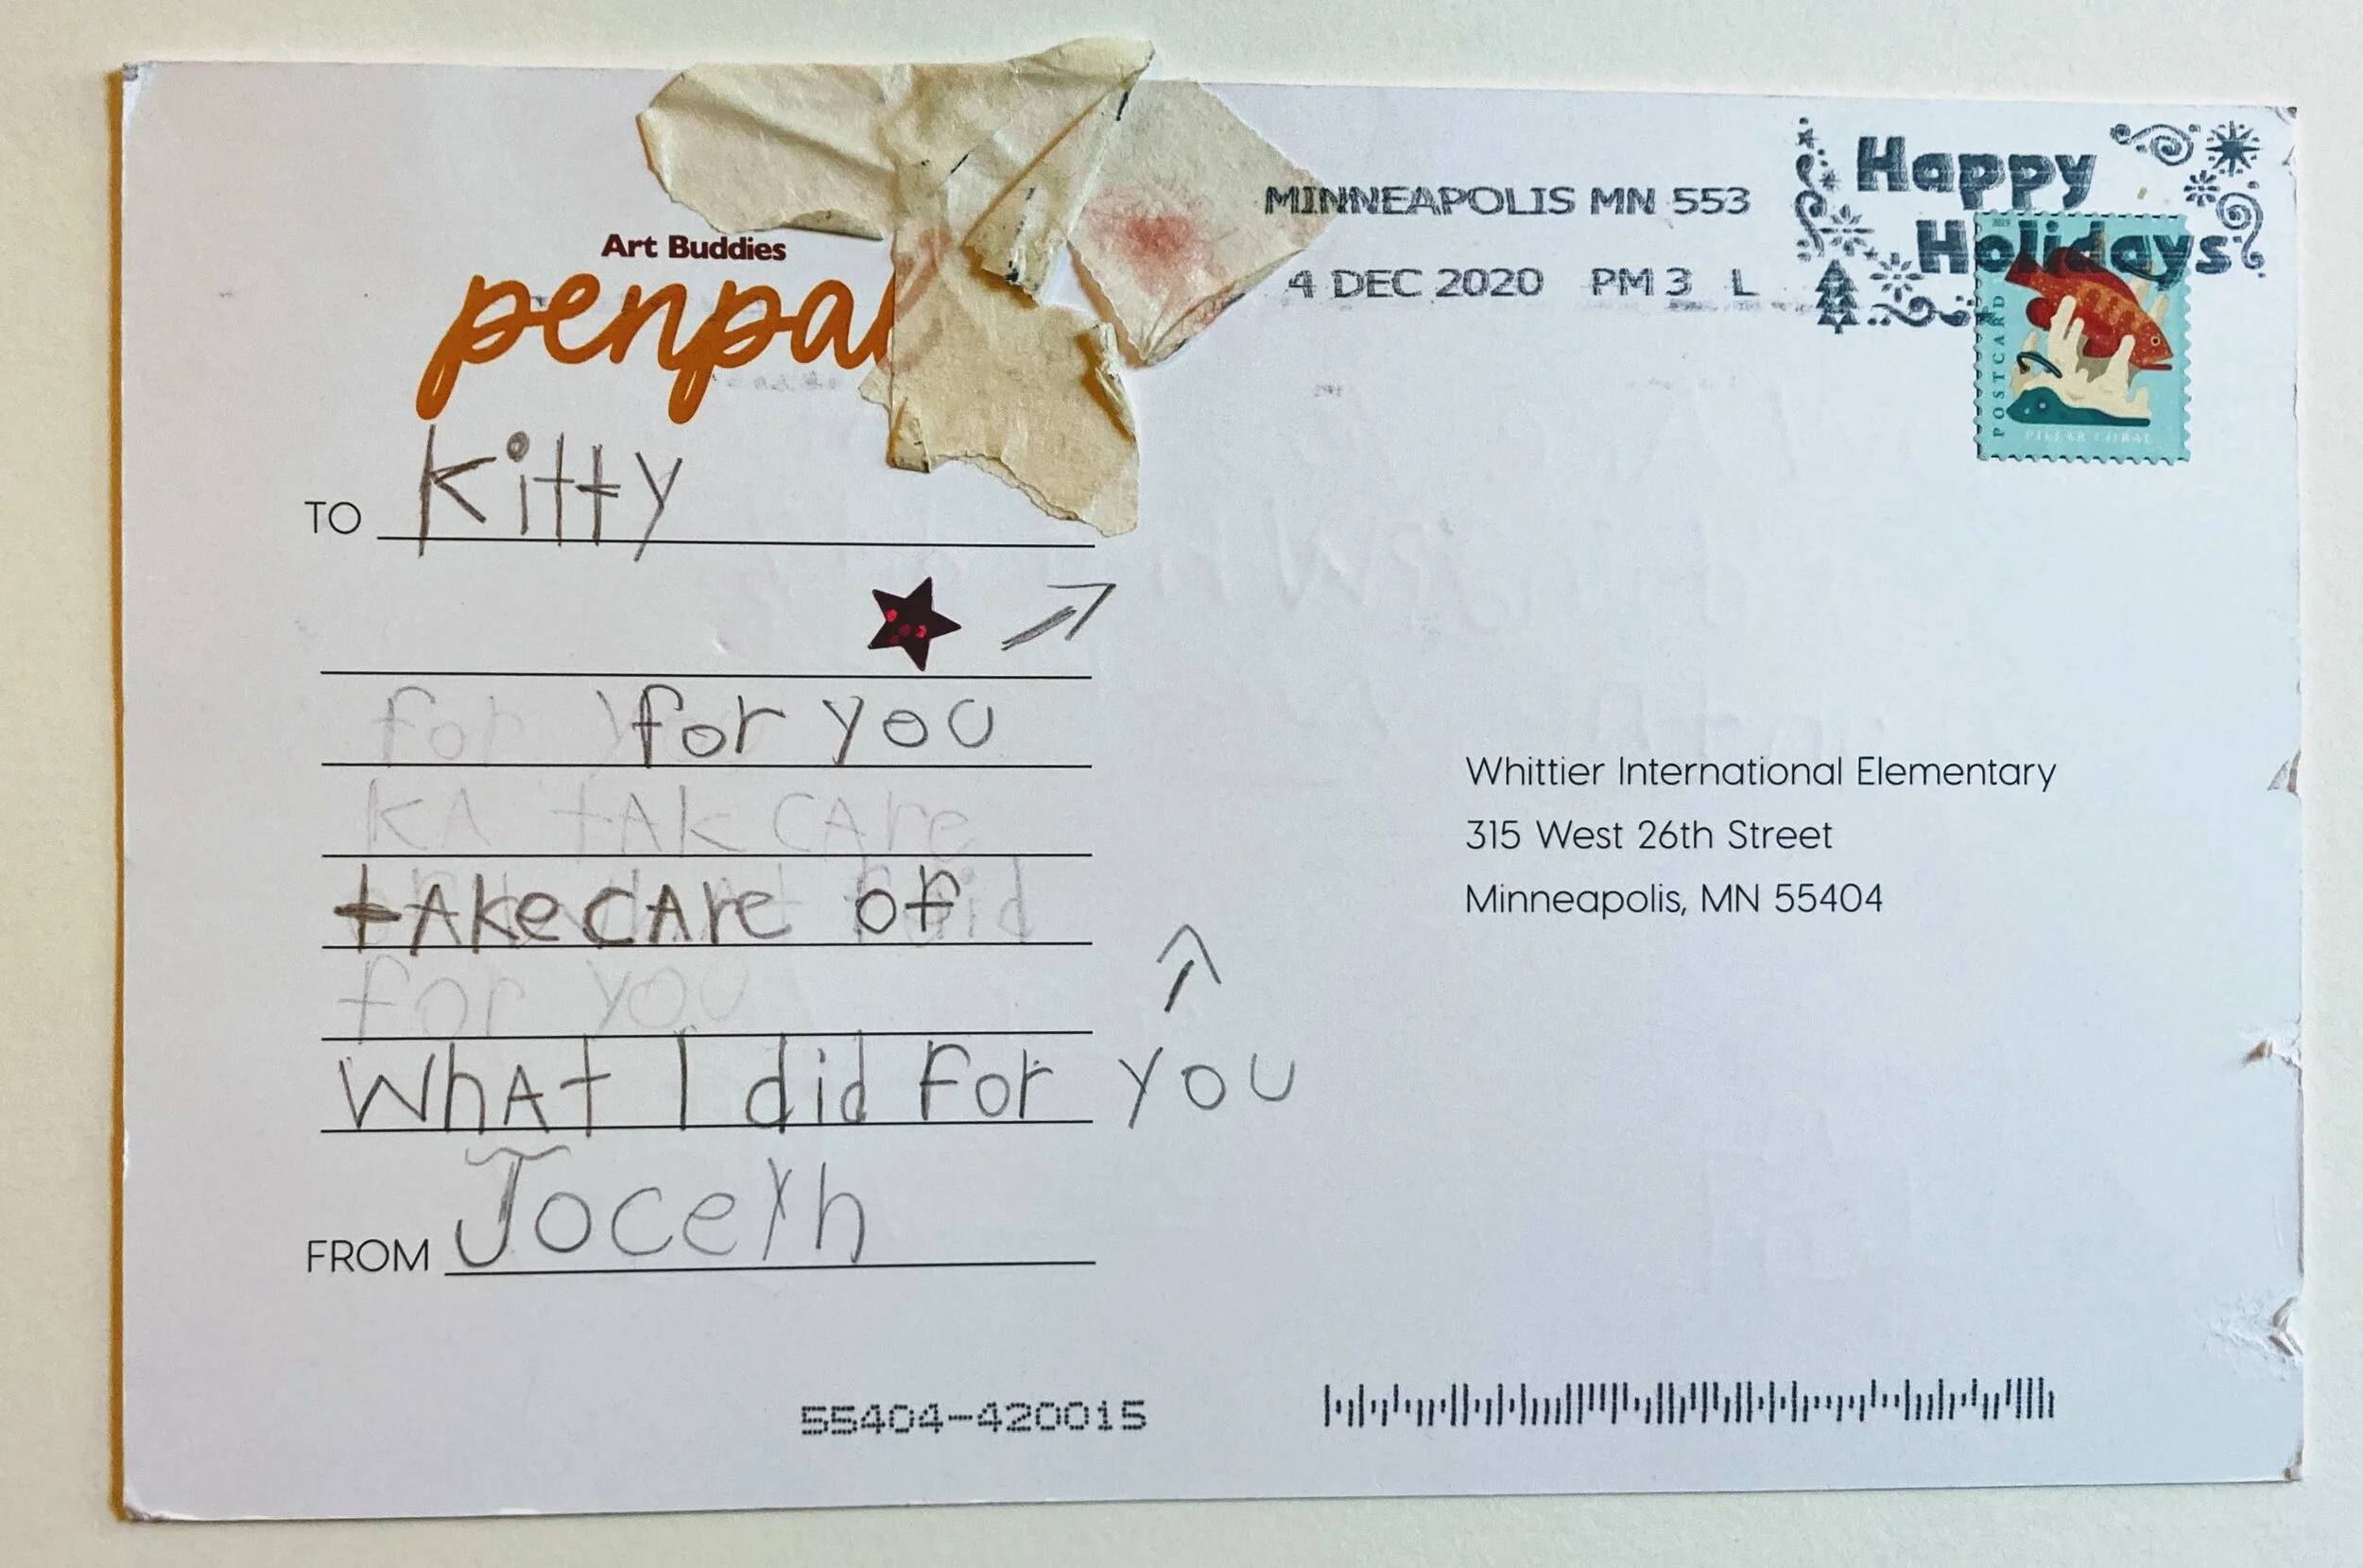 Art Buddies
penpal
TO Kitty
for you
for
KA tAK CAre
tAke CAre of
did
for you
WhAt I did For you
FROM Joceth
55404-420015
MINNEAPOLIS MN 553
4 DEC 2020 PM 3 L
Happy
Holidays
2019
POSTCARD
PILLAR CORAL
Whittier International Elementary
315 West 26th Street
Minneapolis, MN 55404